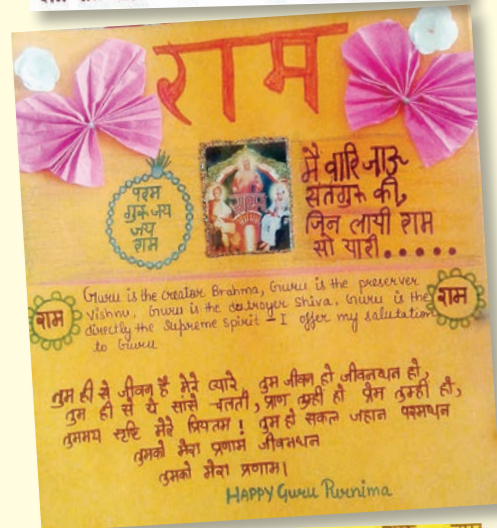 राम
परम
गुरु जय
जय
राम
मै वारि जाऊ
सतगुरु की,
जिन लायी राम
सो यारी.....
राम
Guru is the creator Brahma, Guru is the preserver
Vishnu, Guru is the destroyer Shiva, Guru is the
directly the Supreme Spirit – I offer my salutation
to Guru
राम
तुम ही से जीवन है मेरे प्यारे, तुम जीवन हो जीवनधन हो,
तुम ही से ये सांसे चलती, प्राण तुम्हीं हो प्रेम तुम्हीं हो,
तुममय सृष्टि मेरे प्रियतम! तुम हो सकल जहान परमधन
तुमको मेरा प्रणाम जीवनधन
तुमको मेरा प्रणाम।
HAPPY Guru Purnima